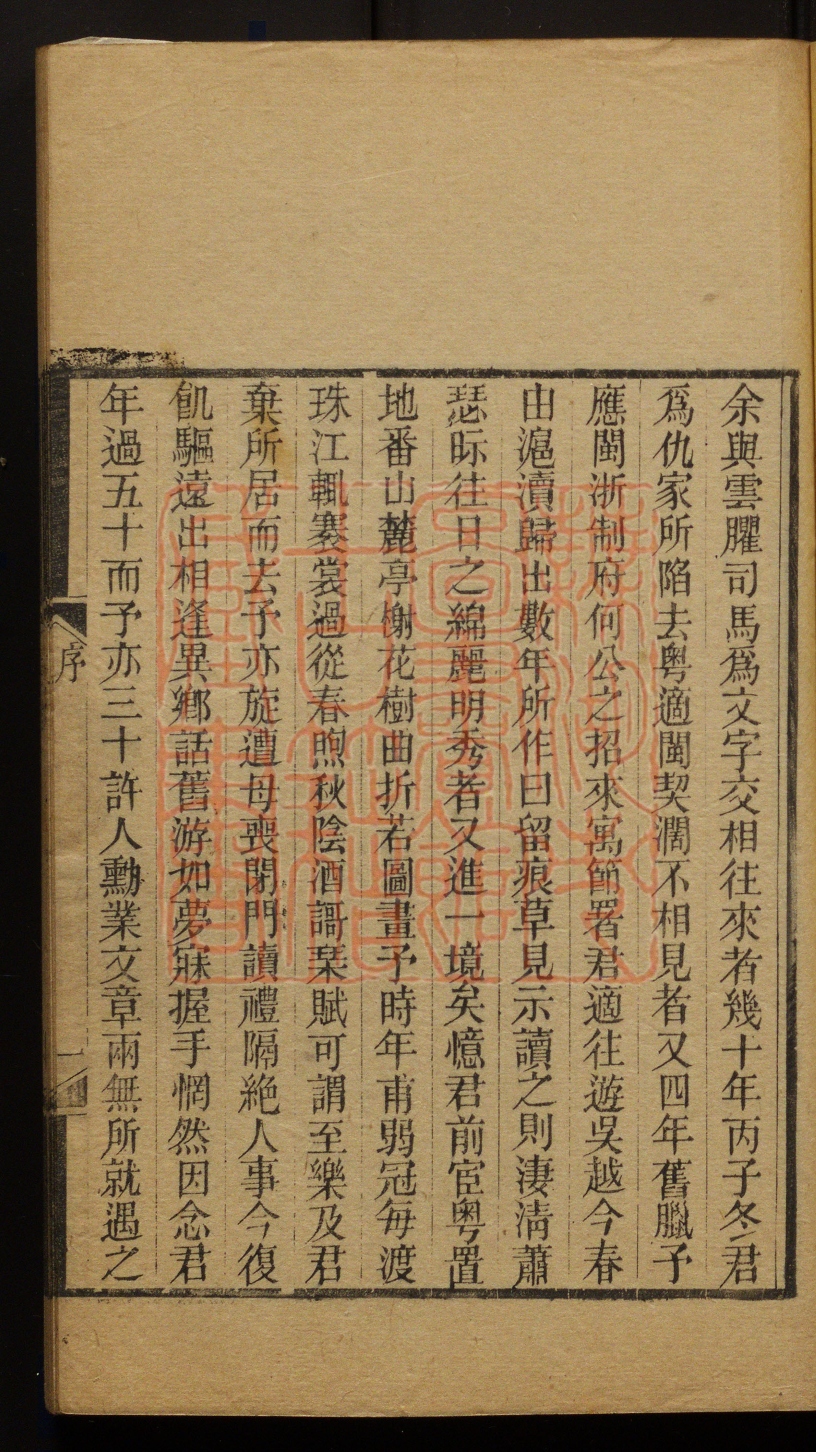 余與雲臞司馬爲文字交相往來者幾十年丙子冬君
爲仇家所陷去粵適閩契濶不相見者又四年舊臘予
應閩浙制府何公之招來寓節署君適往遊吳越今春
由滬瀆歸出數年所作曰留痕草見示讀之則淒淸蕭
瑟眎往日之綿麗明秀者又進一境矣憶君前宦粵置
地番山麓亭榭花樹曲折若圖畫予時年甫弱冠每渡
珠江輒褰裳過從春煦秋陰酒謌棊賦可謂至樂及君
棄所居而去予亦旋遭母喪閉門讀禮隔絶人事今復
飢驅遠出相逢異鄉話舊游如夢寐握手惘然因念君
年過五十而予亦三十許人勳業文章兩無所就遇之
序
一